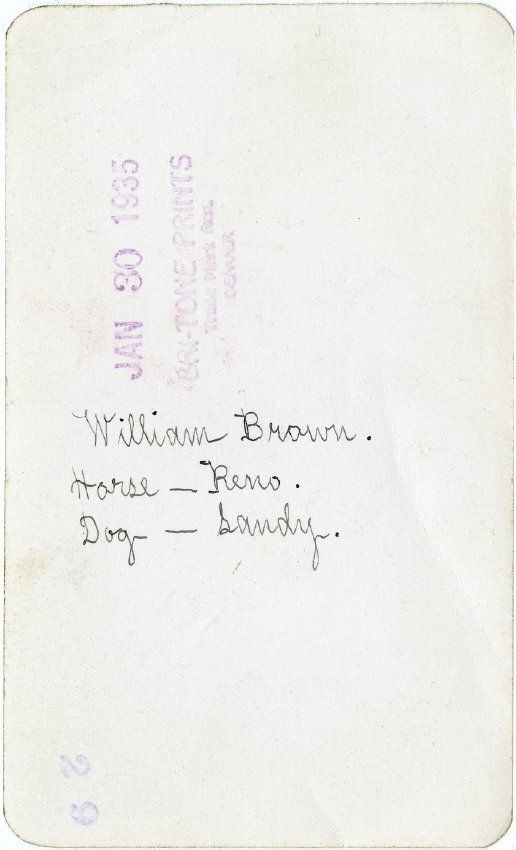 JAN 30 1935
BRI-TONE PRINTS
Trade Mark Reg.
DENVER
William Brown.
Horse — Reno.
Dog — Sandy.